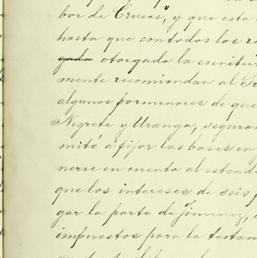 bor de Cruces, y que esta
hasta que con todos los re
gada otorgada la escritur
mente recomiendan al Sr
algunos pormenores de que
Negrete y Uranga, segura
mitó á fijar las bases en
nerse en cuenta al estende
que los intereses de seis p
gar la parte de Jimenez,
impuestos para la testam